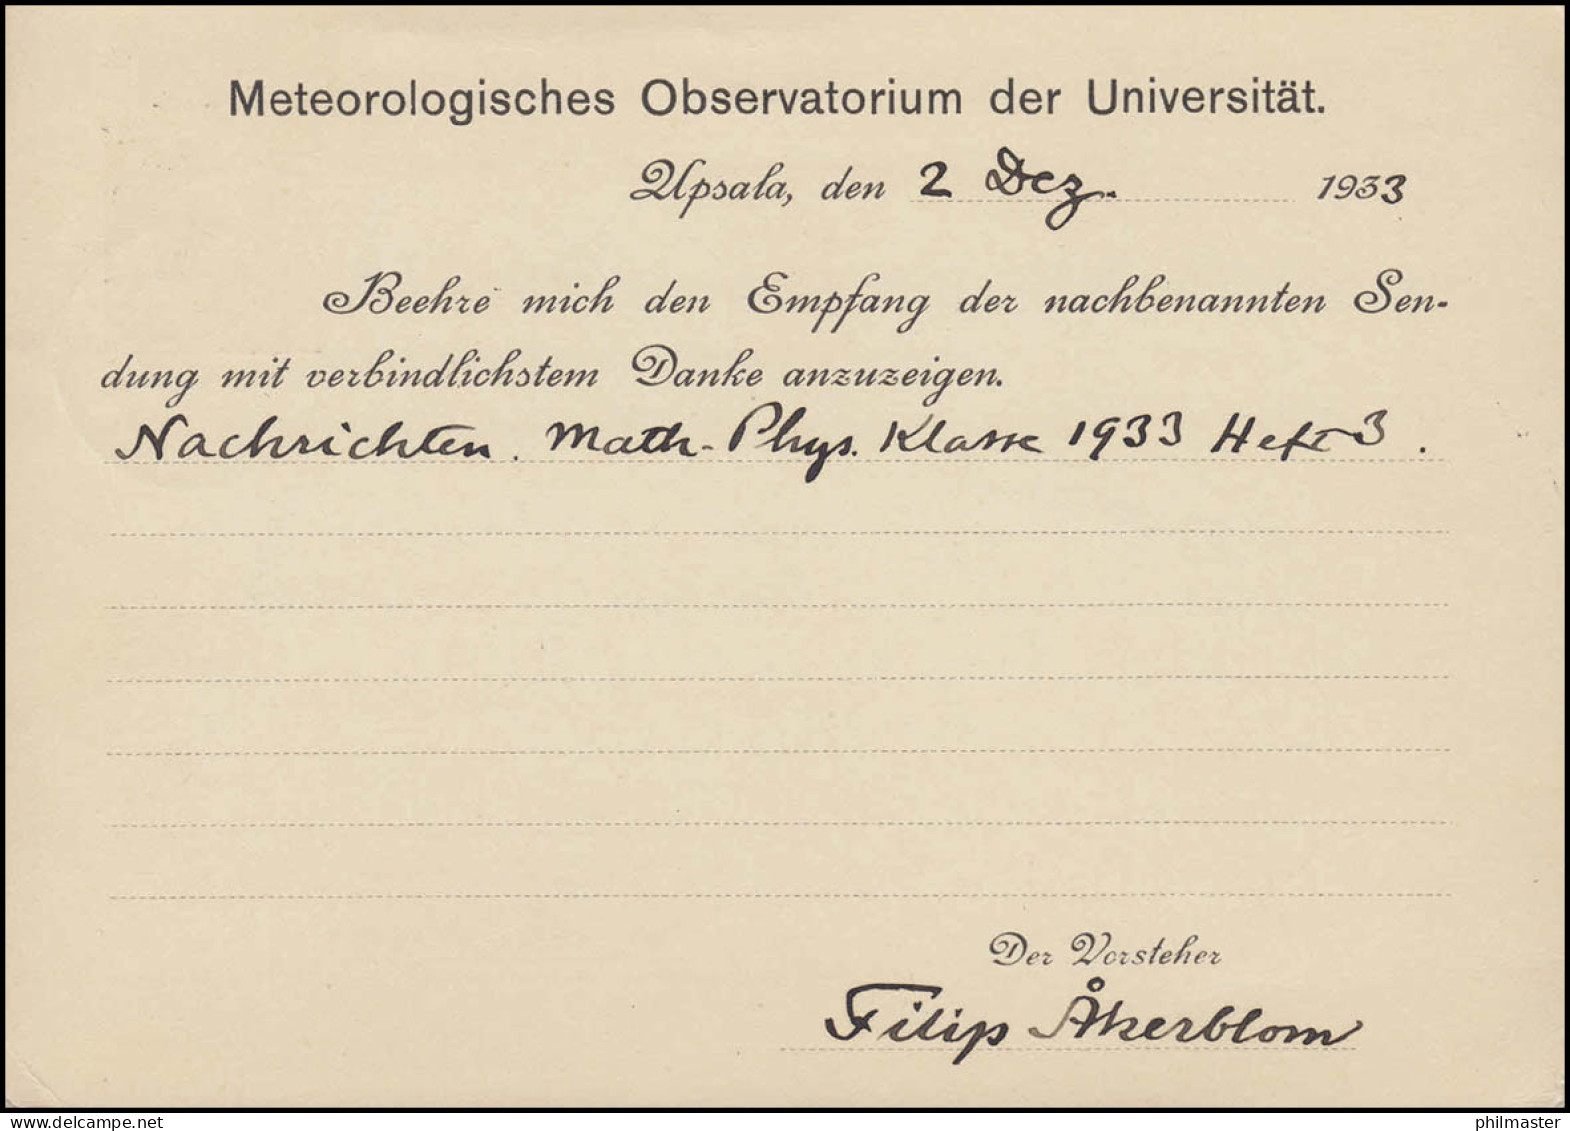 Meteorologisches Observatorium der Universität.
Upsala, den 2 Dez. 1933
Beehre mich den Empfang der nachbenannten Sen-
dung mit verbindlichstem Danke anzuzeigen.
Nachrichten. Math-Phys. Klasse 1933 Heft 3.
Der Vorsteher
Filip Åkerblom
philmaster